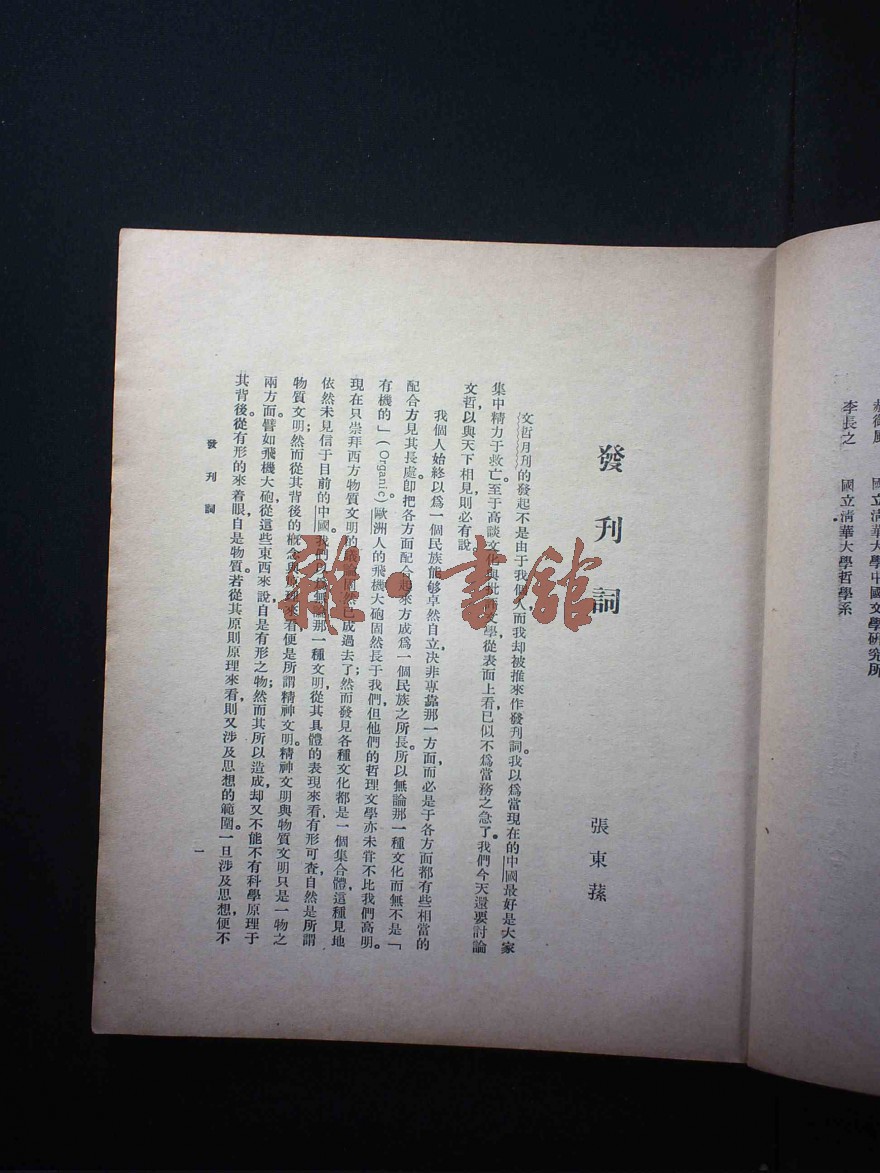 郝御風　國立清華大學中國文學研究所
李長之　國立清華大學哲學系
發刊詞
張東蓀
文哲月刊的發起不是由于我個人而我却被推來作發刊詞。我以爲當現在的中國最好是大家
集中精力于救亡至于高談文化與批評文學從表面上看已似不爲當務之急了。我們今天還要討論
文哲以與天下相見則必有說。
我個人始終以爲一個民族能够卓然自立決非專靠那一方面,而必是于各方面都有些相當的
配合方見其長處卽把各方面配合起來方成爲一個民族之所長。所以無論那一種文化而無不是「
有機的」(Organic)。歐洲人的飛機大砲固然長于我們,但他們的哲理文學亦未嘗不比我們高明。
現在只崇拜西方物質文明的議論固然已成過去了;然而發見各種文化都是一個集合體這種見地
依然未見信于目前的中國。我們以爲無論那一種文明,從其具體的表現來看有形可查自然是所謂
物質文明;然而從其背後的概念與原理來看便是所謂精神文明。精神文明與物質文明只是一物之
兩方面。譬如飛機大砲從這些東西來說自是有形之物;然而其所以造成,却又不能不有科學原理于
其背後。從有形的來着眼,自是物質。若從其原則原理來看則又涉及思想的範圍。一旦涉及思想,便不
發刊詞
一
雜·書館